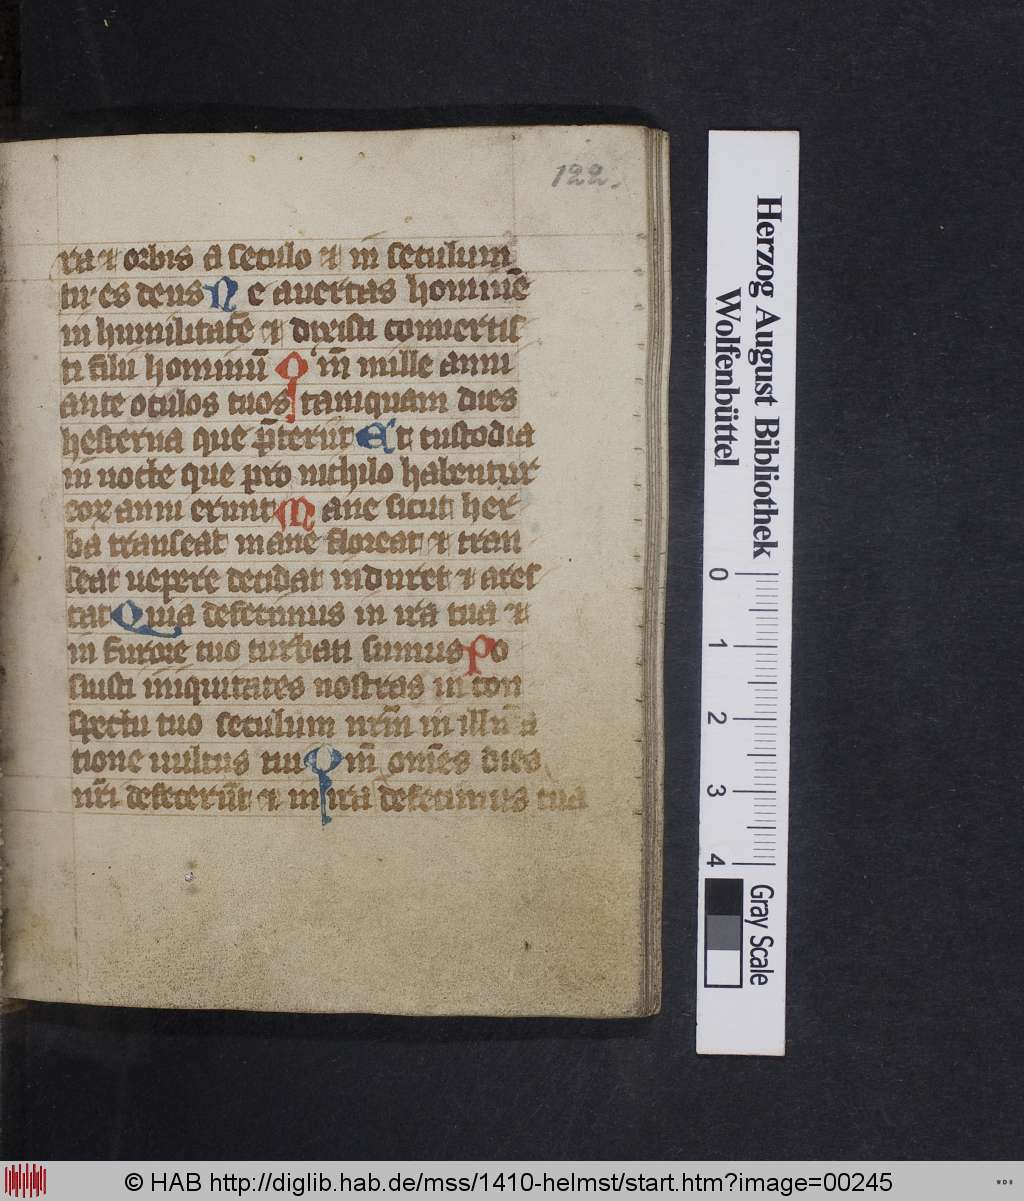 122.
ra ⁊ orbis a seculo ⁊ in seculum
tu es deus Ne auertas hominē
in humilitatē ⁊ dixisti conuertiͥ
ti filii hominū Qͦm̄ mille anni
ante oculos tuos tamquam dies
hesterna que p̄teriit Et custodia
in nocte que pro nichilo habentur
eoꝝ anni erunt Mane sicut her
ba transeat mane floreat ⁊ tran
seat uespere decidat induret ⁊ aresͨ
cat Quia defecimus in ira tua ⁊
in furore tuo turbati sumus Po
suisti iniquitates nostras in con
spectu tuo seculum nrm̄ in illūi
tione uultus tui Qm̄ om̄es dies
nr̄i defecerūt ⁊ in ira defecimus tua
Herzog August Bibliothek
Wolfenbüttel
0 1 2 3 4
Gray Scale
© HAB http://diglib.hab.de/mss/1410-helmst/start.htm?image=00245
WDB